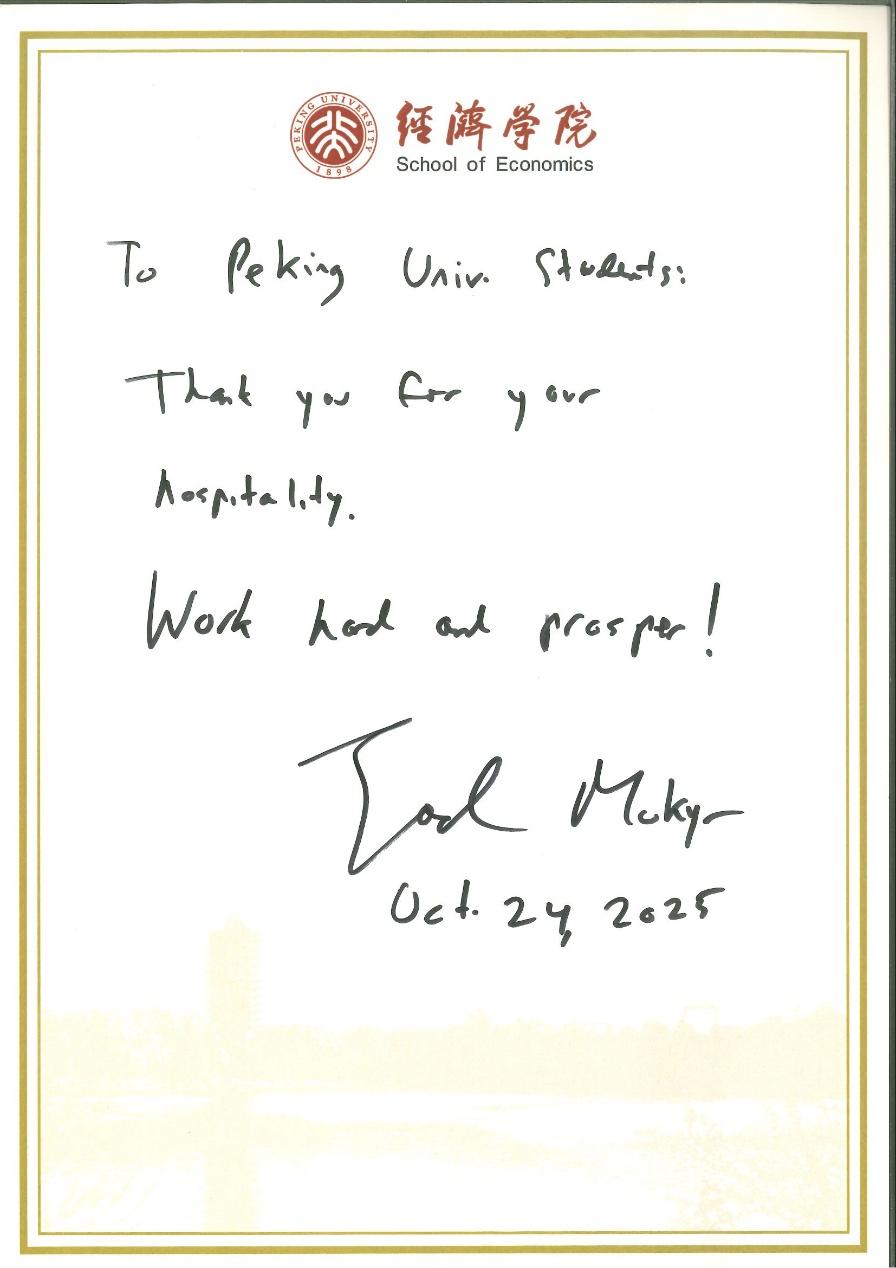 PEKING UNIVERSITY
1898
經濟學院
School of Economics
To Peking Univ. Students:
Thank you for your
hospitality.
Work hard and prosper!
Joel Mokyr
Oct. 24, 2025